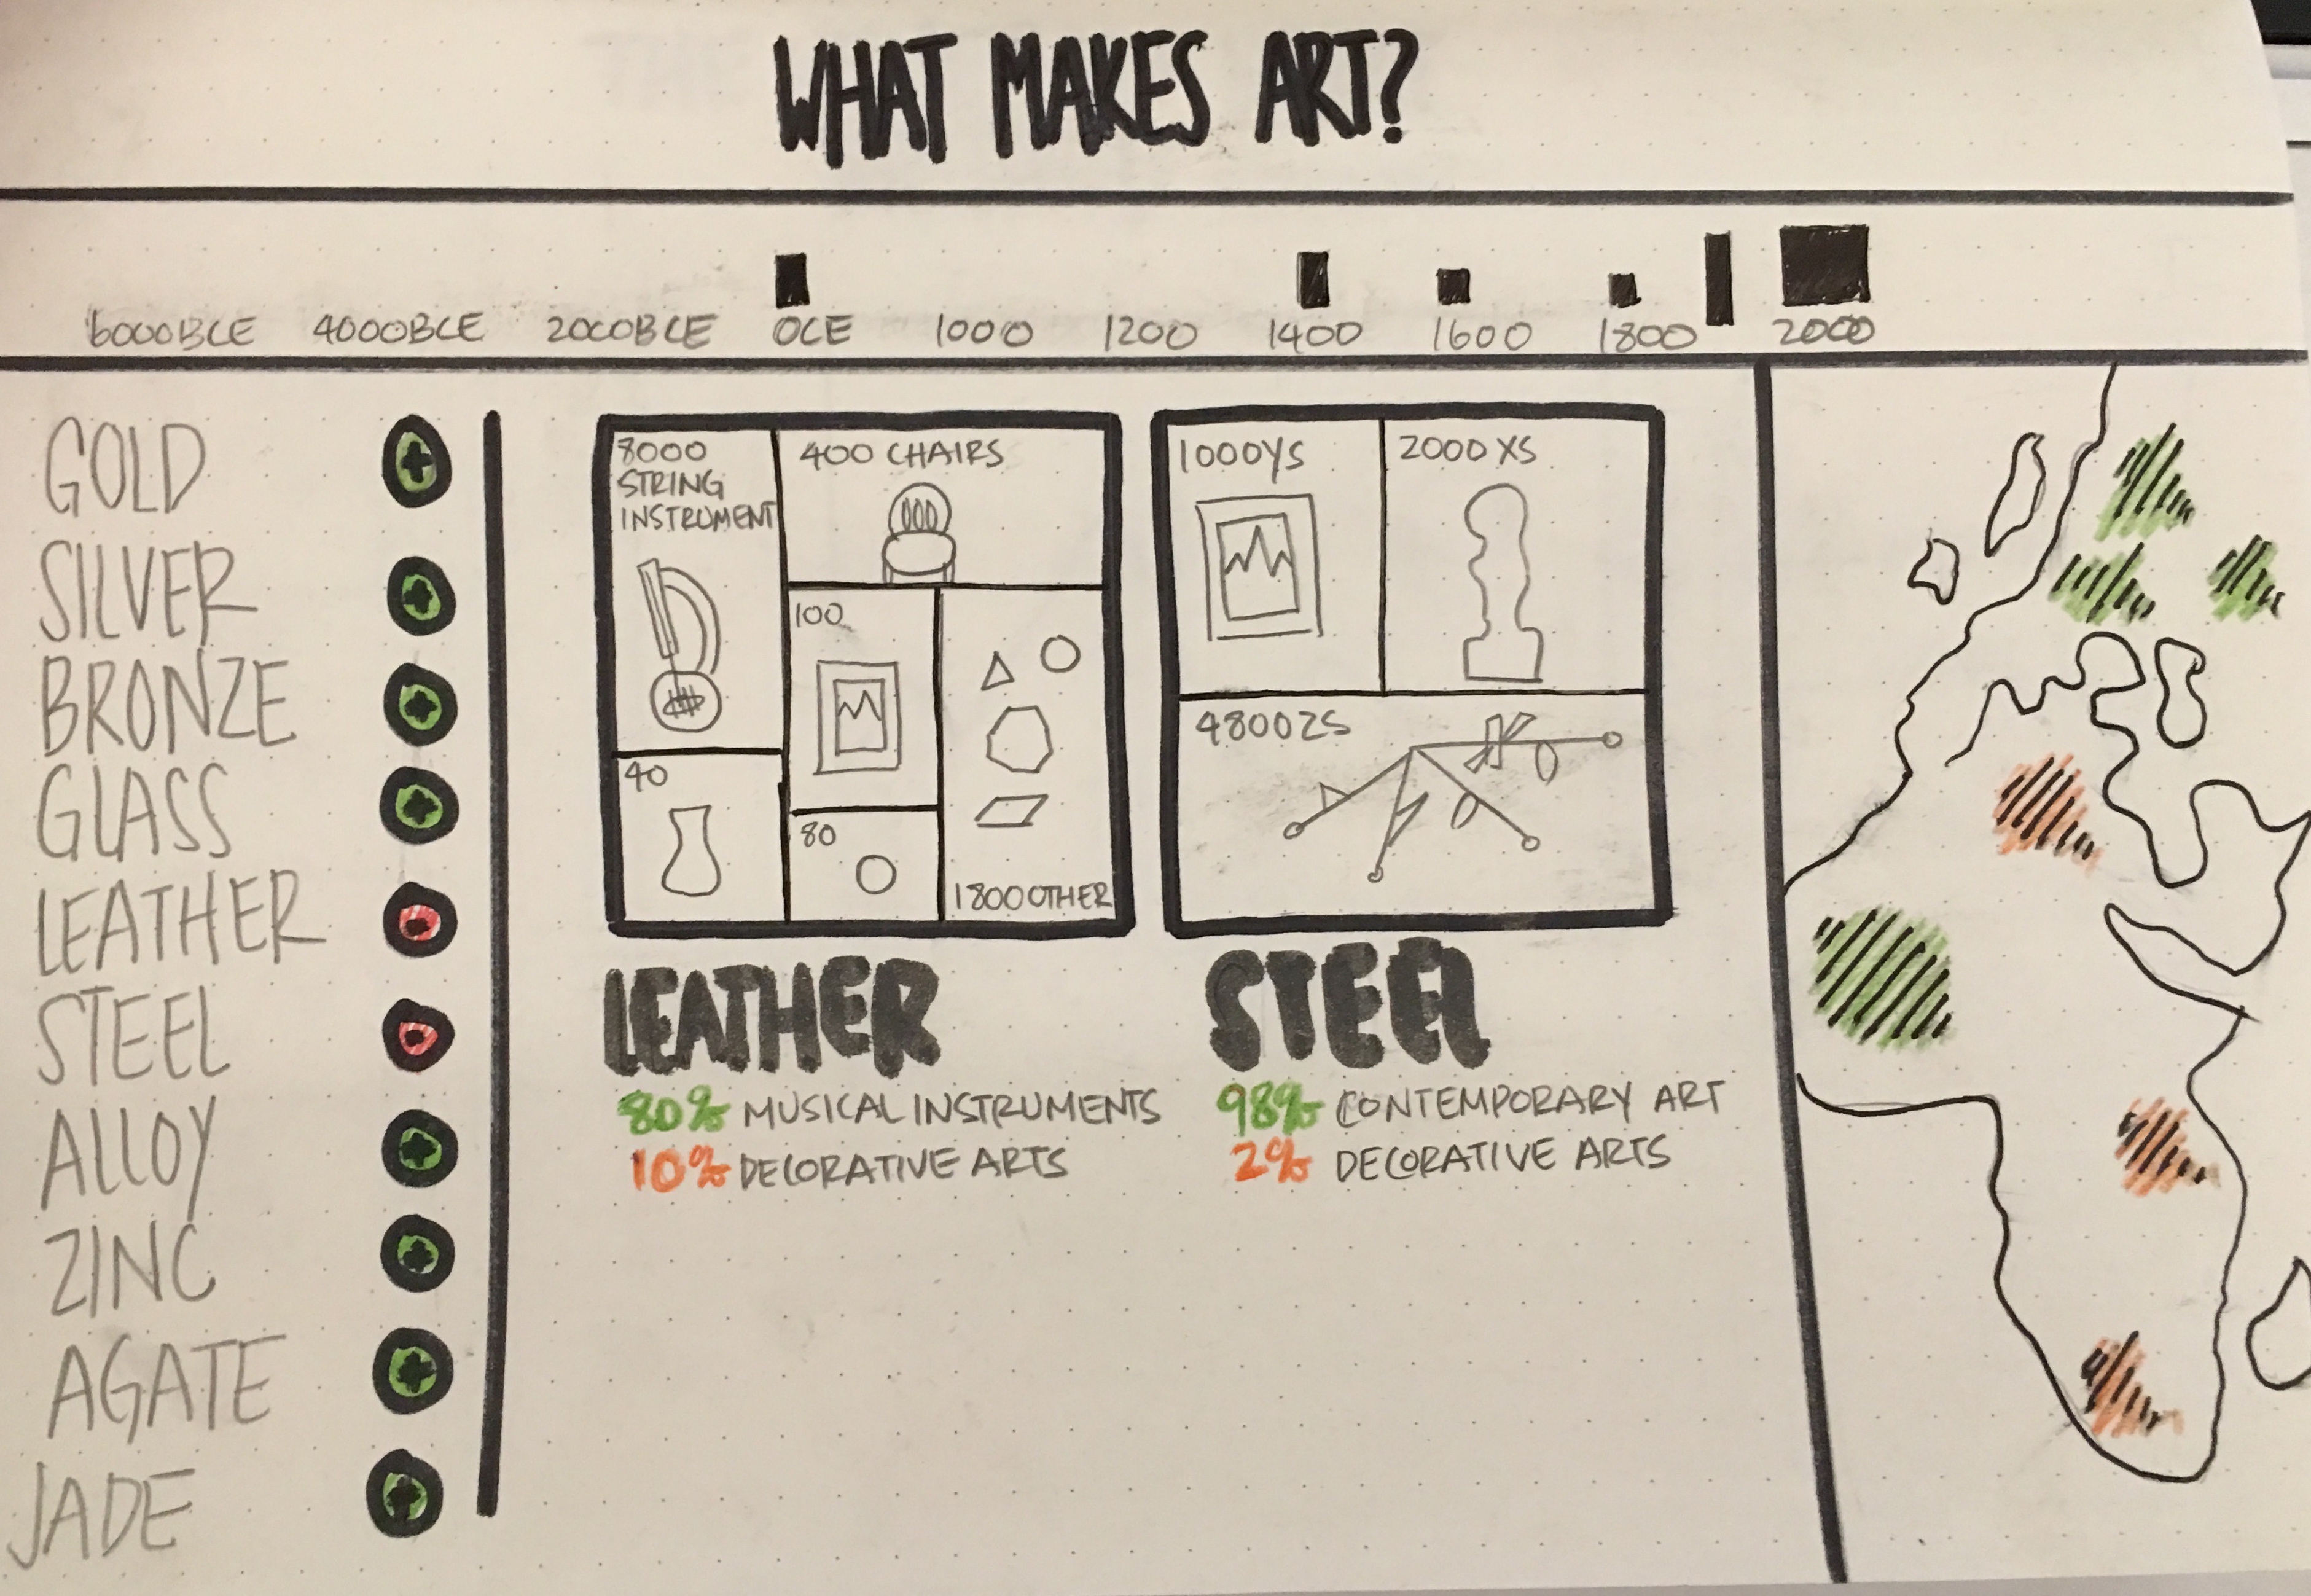 WHAT MAKES ART?
6000BCE 4000BCE 2000BCE 0CE 1000 1200 1400 1600 1800 2000
GOLD
SILVER
BRONZE
GLASS
LEATHER
STEEL
ALLOY
ZINC
AGATE
JADE
8000
STRING
INSTRUMENT
400 CHAIRS
100
40
80
1800 OTHER
LEATHER
80% MUSICAL INSTRUMENTS
10% DECORATIVE ARTS
1000 YS
2000 XS
4800 ZS
STEEL
98% CONTEMPORARY ART
2% DECORATIVE ARTS